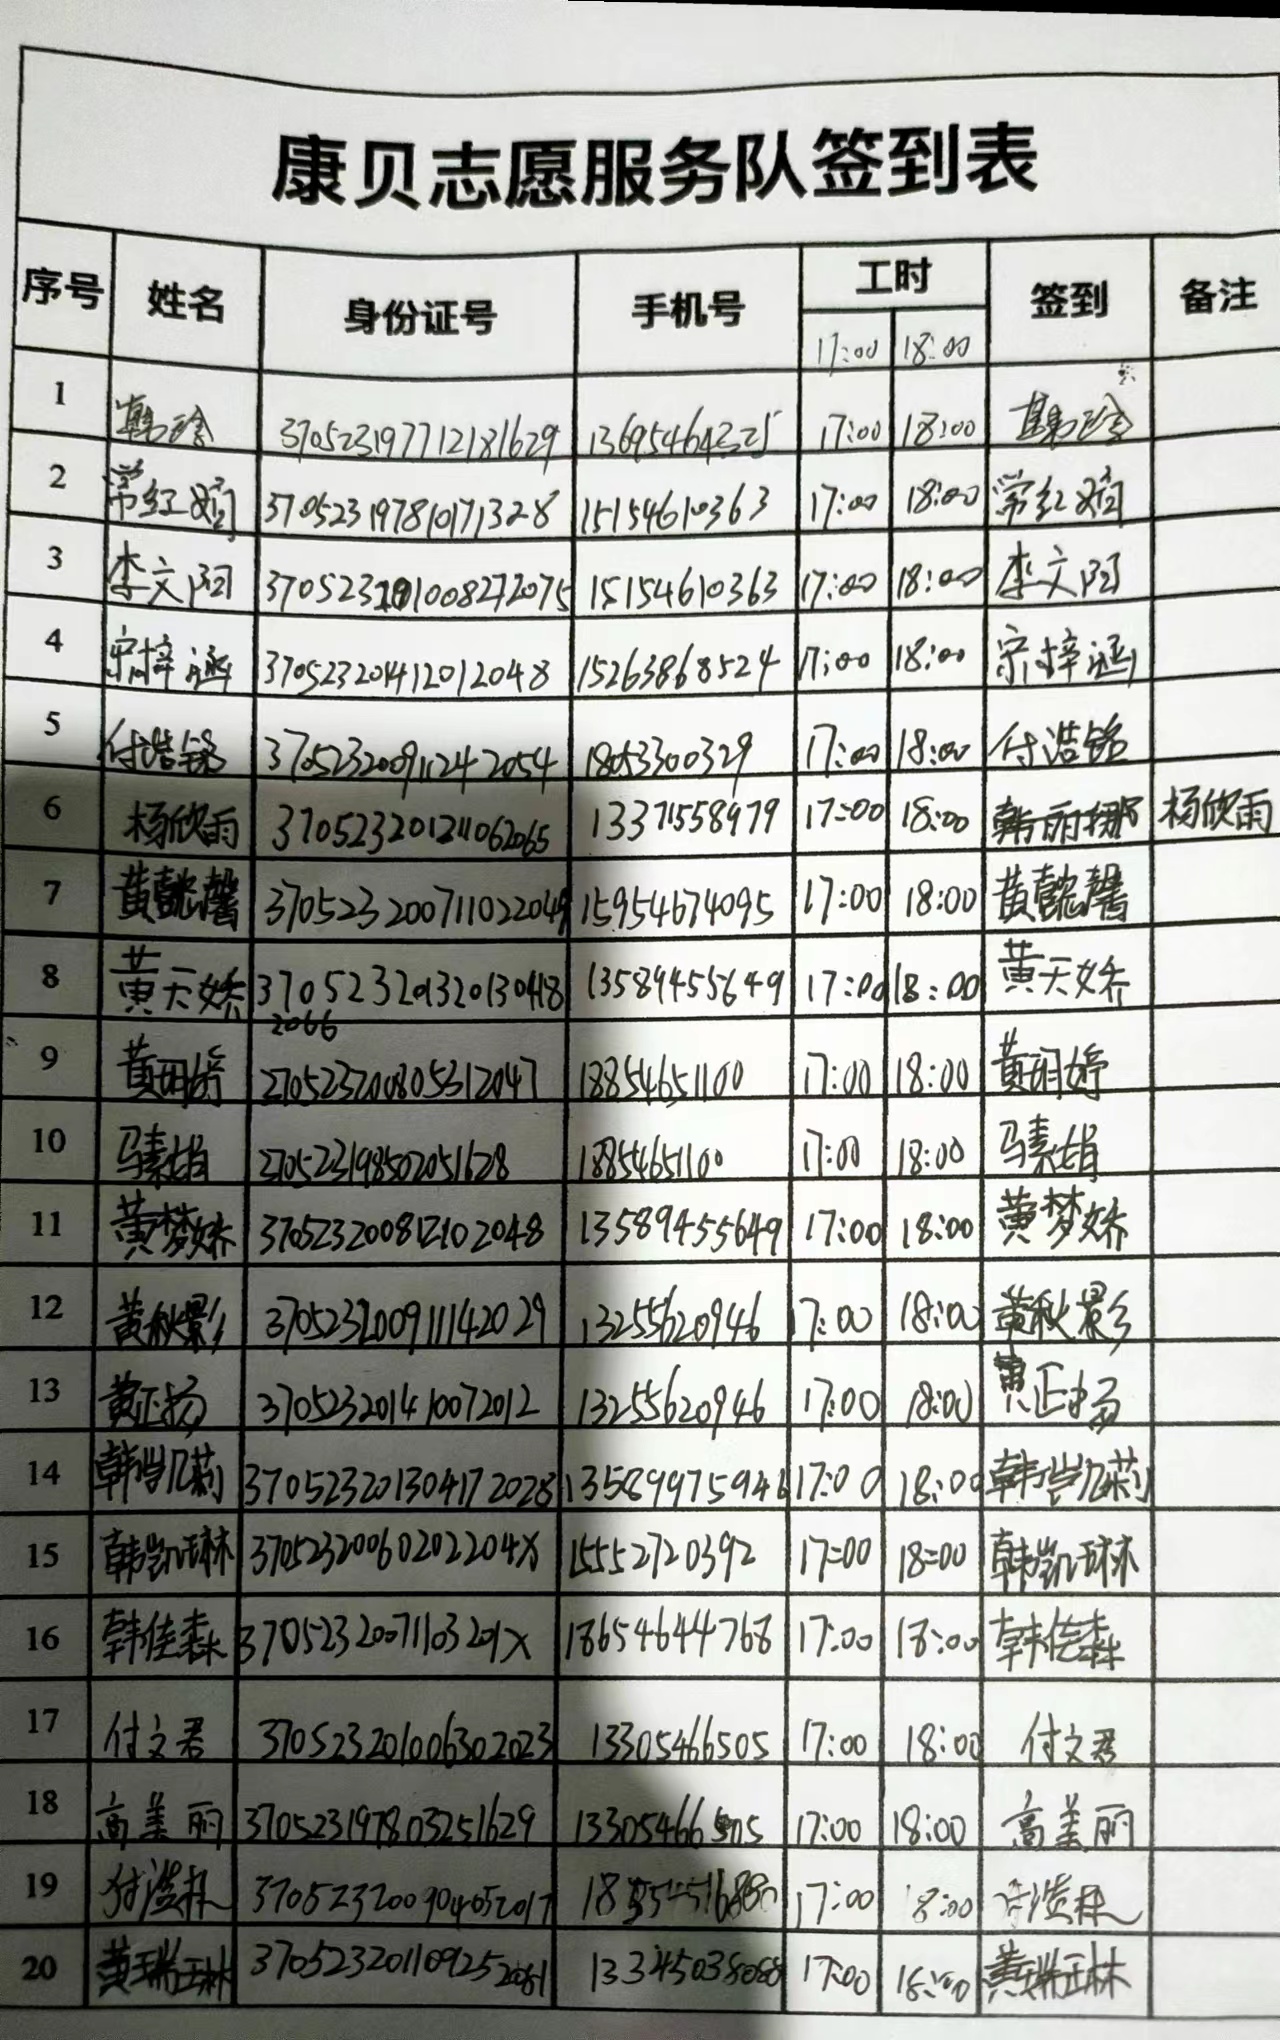 康贝志愿服务队签到表
序号 姓名 身份证号 手机号 工时 签到 备注
17:00 18:00
1 韩 370523197712181629 17:00 18:00 韩
2 常红 370523197810171328 15154610363 17:00 18:00 常红
3 李文阳 15154610363 17:00 18:00 李文阳
4 宗梓涵 370523201412012048 15263868524 17:00 18:00 宗梓涵
5 付浩铭 370523200911242054 18053300329 17:00 18:00 付浩铭
6 杨欣雨 370523201211062065 13371558979 17:00 18:00 杨欣雨
7 黄懿馨 370523200711022049 15954674095 17:00 18:00 黄懿馨
8 黄天娇 370523201320130418 13589455649 17:00 18:00 黄天娇
2066
9 黄玥婷 370523200805312047 18854651100 17:00 18:00 黄玥婷
10 马素娟 370523198502051628 18854651100 17:00 18:00 马素娟
11 黄梦娇 370523200812102048 13589455649 17:00 18:00 黄梦娇
12 黄秋影 370523200911142029 13255620946 17:00 18:00 黄秋影
13 黄正扬 370523201410072012 13255620946 17:00 18:00 黄正扬
14 韩凯莉 370523201304172028 13589975946 17:00 18:00 韩凯莉
15 韩凯琳 37052320060202204X 15552720392 17:00 18:00 韩凯琳
16 韩佳森 37052320071103201X 18654644768 17:00 18:00 韩佳森
17 付文君 370523201006302023 13305466505 17:00 18:00 付文君
18 高美丽 370523197803251629 13305466505 17:00 18:00 高美丽
19 付滋林 370523200904052017 17:00 18:00 付滋林
20 黄瑞琳 370523201109252081 13345038088 17:00 18:00 黄瑞琳